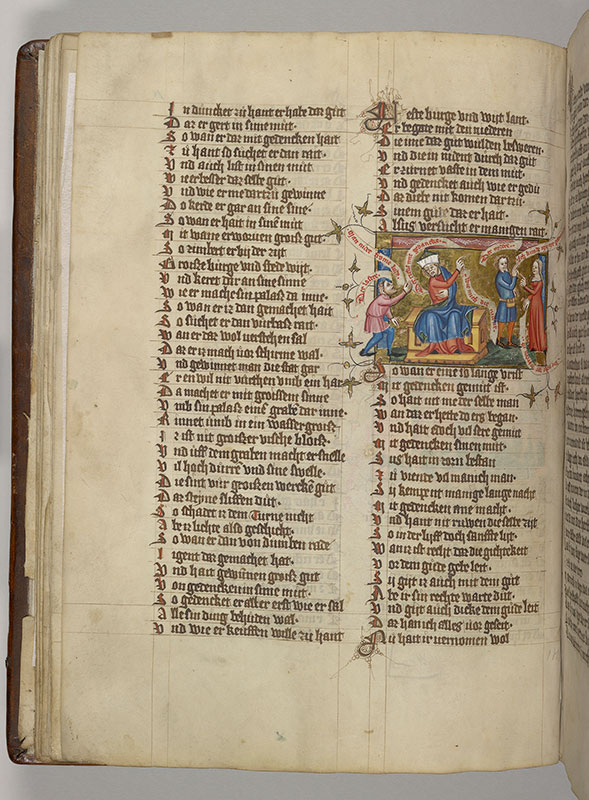 In duncket zu hant er habe daz gut
Daz er gert in sine mut·
So wan er daz mit gedencken hait
Zu hant so suchet er dan rait·
Vnd auch list in sinen mut
Wie er besser daz selbe gut·
Vnd wie er me dar zu gewinne
Do kerde er gar an sine sinne·
So wan er hait in sine mut
Mit wane erworben groiß gut·
So zimbert er bij der zijt
Groisze burge vnd stede wijt·
Vnd keret dir an sine sinne
Wie er mache sin palas da inne·
So wan er iz dan gemachet hait
So suchet er dan vurbaß rait·
Wan er daz wol versehen sal
Daz er iz mach vor schirme wal·
Vnd gewinnet man die stat gar
Er en wil nit vaechten vmb ein har
Da machet er mit groissem sinne
Vmb sin palase eine grabe dar inne·
Rinnet vmb in ein wassergroiß·
Ir ist nit groisser vische bloiß·
Vnd uff dem graben machet er snelle
Vil hoch durre vnd sine swelle·
Die sint mit groissen wercken gut
Daz steyne sliffen dut·
So schadet iz dem Turne nicht
Aber lichte also geschicht·
So wan er dan von dumben rade
Irgent daz gemachet hat·
Vnd hait gewunnen groiß gut
Von gedencken in sime mut·
So gedencket er alker erst wie er sal
Alle sin ding behuden wal·
Vnd wie er keuffen wille zu hant
Veste burge vnd wijt lant·
Er begate mit den niederen
Die ime daz gut wulden besweren·
Vnd die in nident durch daz gut
Er zurnet vaste in dem mut·
Vnd gedencket auch wie er gedu
Daz dicke nit komen dar zu·
Sinem gude daz er hait·
Alsus versuchet er manigen rait·
So wan er eine so lange vrist
Mit gedencken gemut ist·
So hait nit me der selbe man
Wan daz er hette do erz began·
Vnd hait doch vil sere gemut
Mit gedencken sinen mut·
Sus hait in zorn bestan
Zu viente vil manich man·
Sij kempent manige lange nacht
Mit gedencken ane macht·
Vnd hant nit ruwen die selbe zijt
So in der lijff doch sanffte lijt·
Wan iz ist recht daz die gidickeit
Vor dem gude gebe leit·
Sij gijt iz auch mit dem gut
Aber ir sin rechte warte dut·
Vnd gijt auch dicke dem gude leit
Daz han ich alles vor geseit·
Nu hait ir vernomen wol